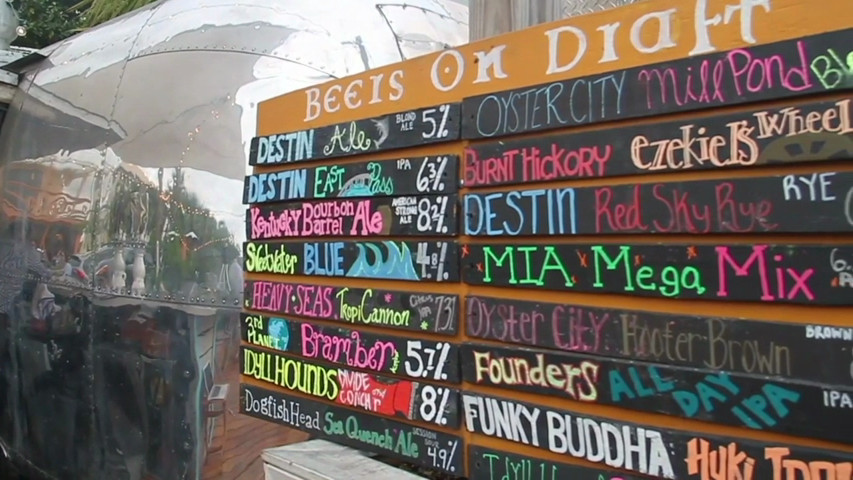 BEERS ON DrafT
DESTIN Ale BLOND ALE 5%
DESTIN EAST Pass IPA 6.3%
Kentucky Bourbon Barrel Ale AMERICAN STRONG ALE 8.2%
Sweetwater BLUE 4.8%
HEAVY SEAS TropiCannon CITRUS IPA
3rd PLANET Bramben 5.7%
IDYLL HOUNDS DIVIDE 8%
DogfishHead Sea Quench Ale SESSION SOUR 4.9%
OYSTER CITY Mill Pond
BURNT HICKORY EZEKIEL'S WHEEL
DESTIN Red Sky Rye RYE
MIA Mega Mix
OYSTER CITY Hooter Brown BROWN
Founders ALL DAY IPA IPA
FUNKY BUDDHA